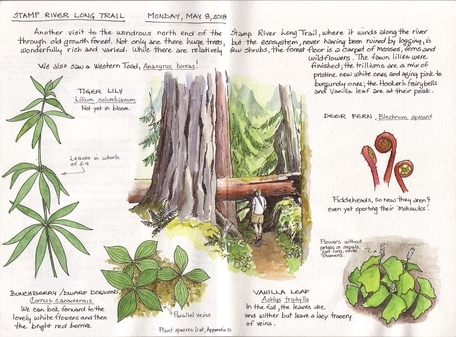 STAMP RIVER LONG TRAIL MONDAY, MAY 8, 2018
Another visit to the wondrous north end of the Stamp River Long Trail, where it winds along the river
through old growth forest. Not only are there huge trees, but the ecosystem, never having been ruined by logging, is
wonderfully rich and varied. While there are relatively few shrubs, the forest floor is a carpet of mosses, ferns and
wildflowers. The fawn lilies were
finished; the trilliums are a mix of
pristine new white ones and aging pink to
burgundy ones; the Hooker's fairybells
and Vanilla leaf are at their peak.
We also saw a Western Toad, Anaxyrus boreas!
TIGER LILY
Lilium columbianum
Not yet in bloom.
Leaves in whorls
of 6-9
DEER FERN, Blechnum spicant
Fiddleheads, so new they aren't
even yet sporting their 'mohawks'!
BUNCHBERRY/DWARF DOGWOOD
Cornus canadensis
We can look forward to the
lovely white flowers and then
the bright red berries.
Parallel veins
Plant species list, Appendix
VANILLA LEAF
Achlys triphylla
In the fall, the leaves die
and wither but leave a lacy tracery
of veins.
Flowers without
petals or sepals,
just long, white
stamens.